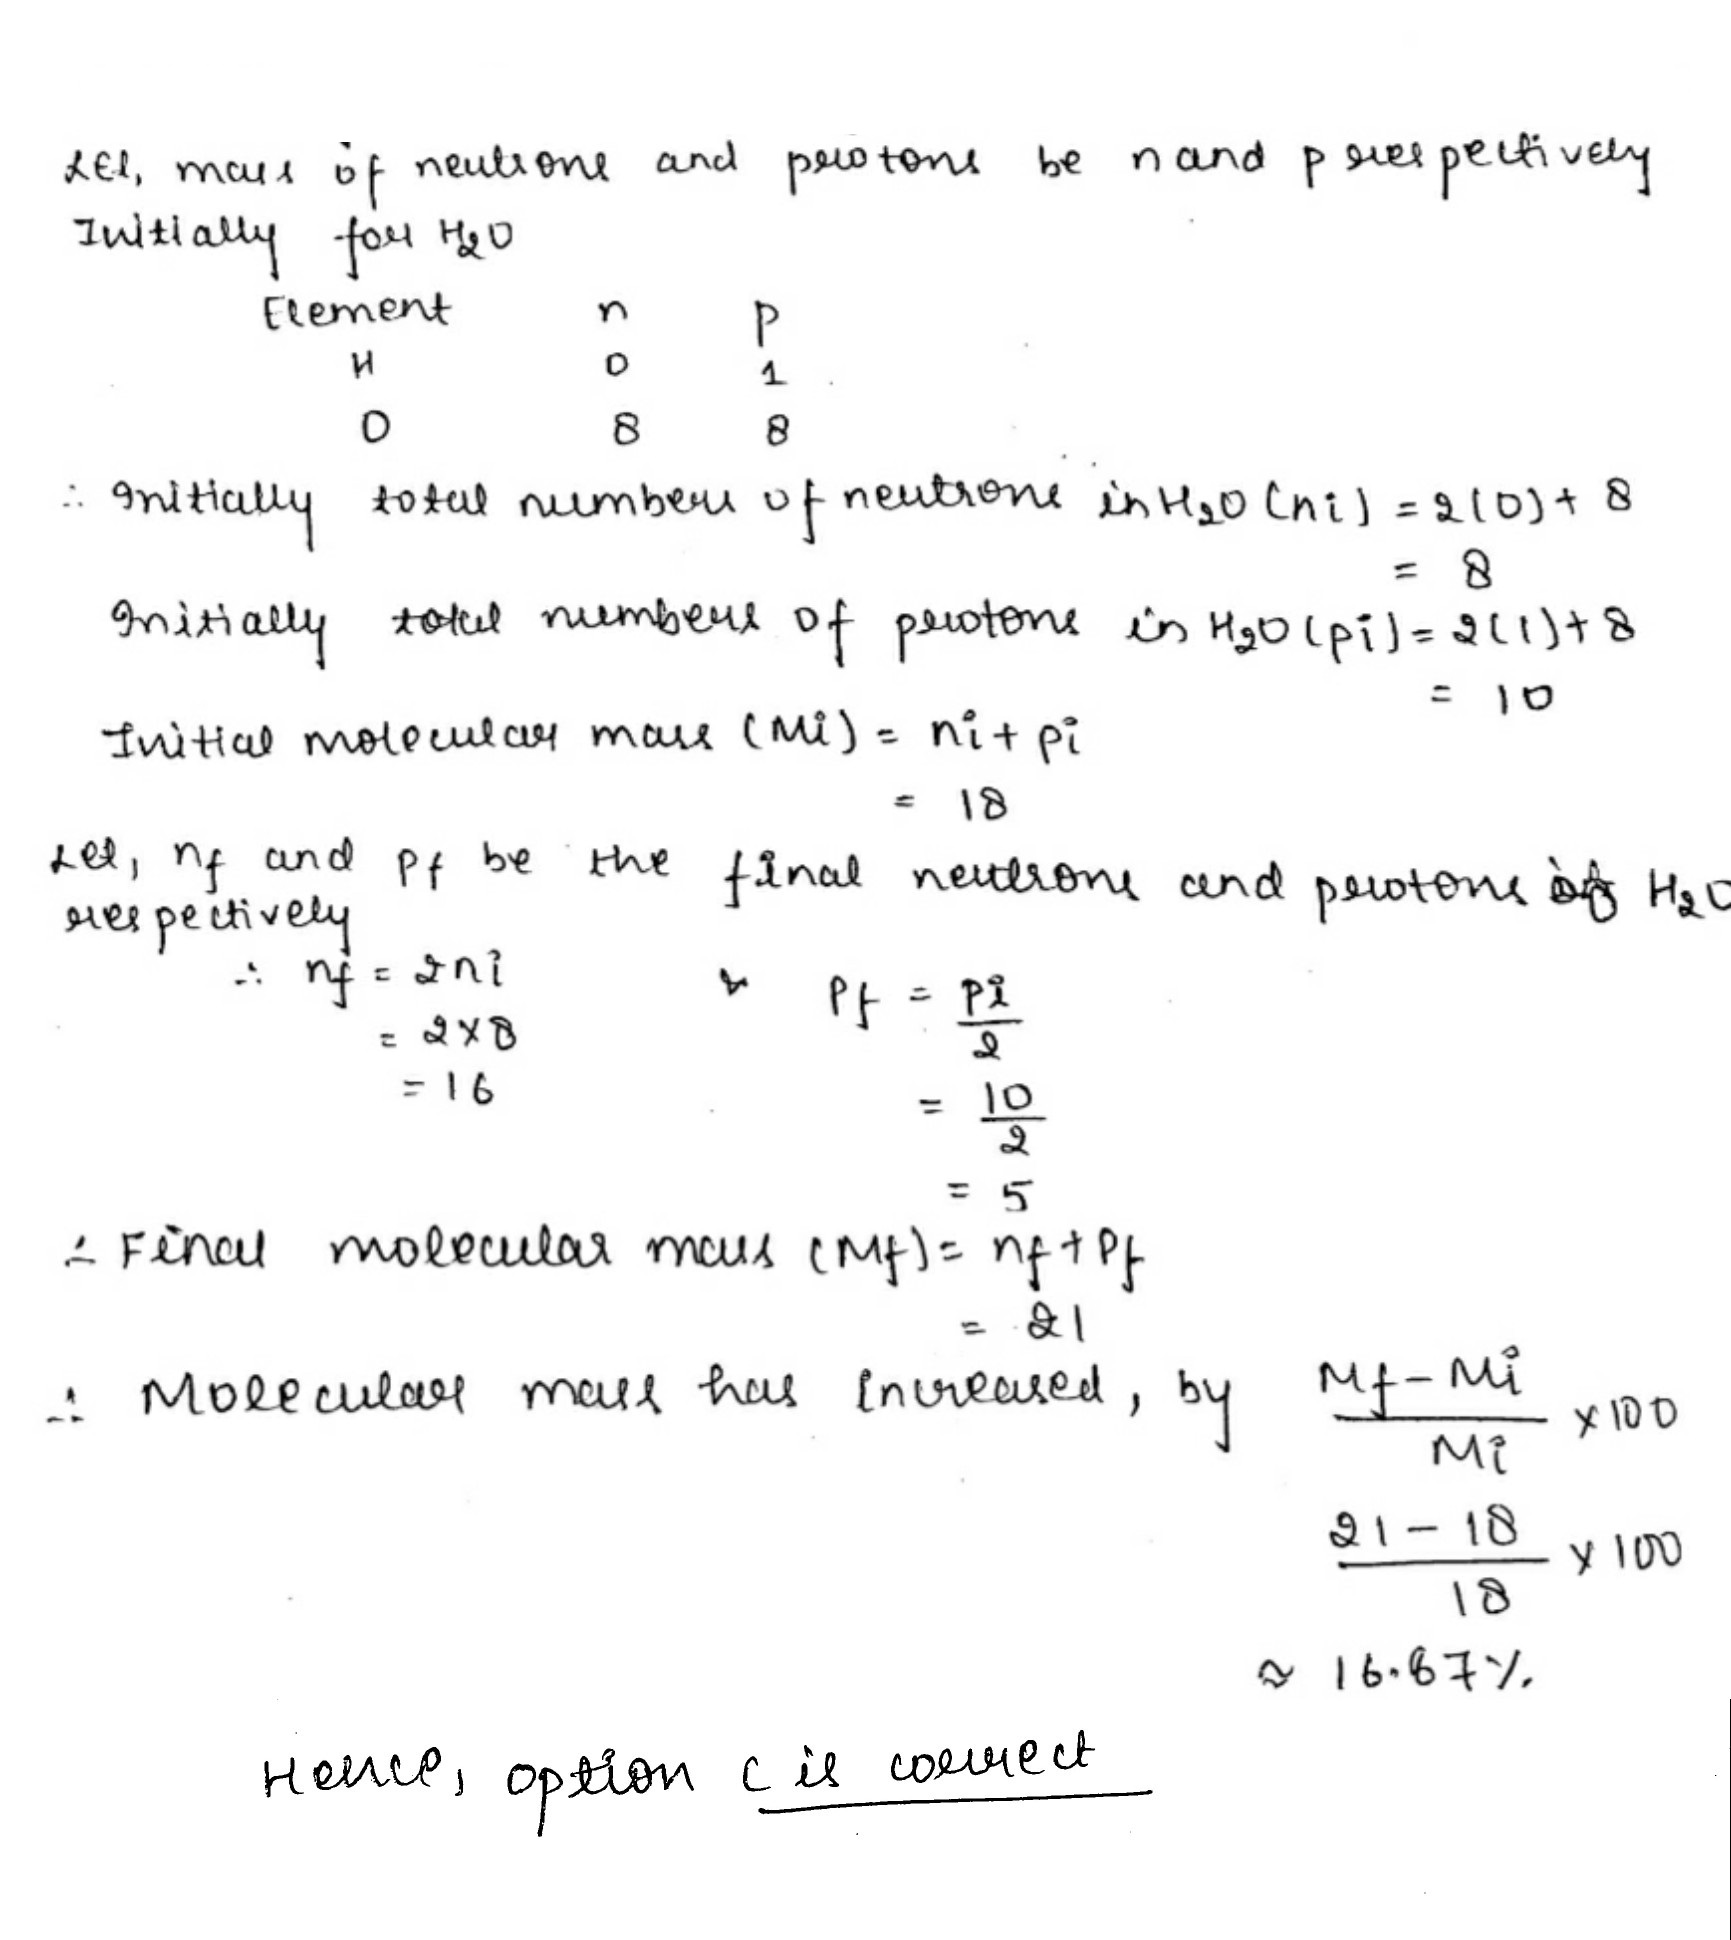 Let, mass of neutrons and protons be n and p respectively
Initially for H2O
Element n p
H 0 1
O 8 8
∴ Initially total numbers of neutrons in H2O (ni) = 2(0) + 8
= 8
Initially total numbers of protons in H2O (pi) = 2(1) + 8
= 10
Initial molecular mass (Mi) = ni + pi
= 18
Let, nf and Pf be the final neutrons and protons of H2O
respectively
∴ nf = 2ni & Pf = pi/2
= 2×8 = 10/2
= 16 = 5
∴ Final molecular mass (Mf) = nf + Pf
= 21
∴ Molecular mass has increased, by (Mf - Mi)/Mi × 100
(21 - 18)/18 × 100
≈ 16.67%.
Hence, option C is correct